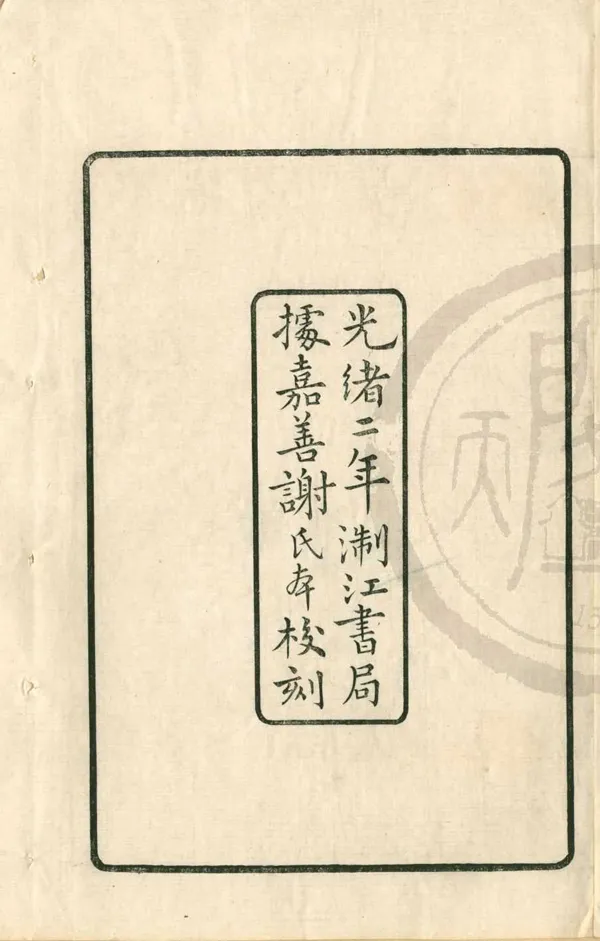 光緒二年淛江書局
據嘉善謝氏本校刻
15